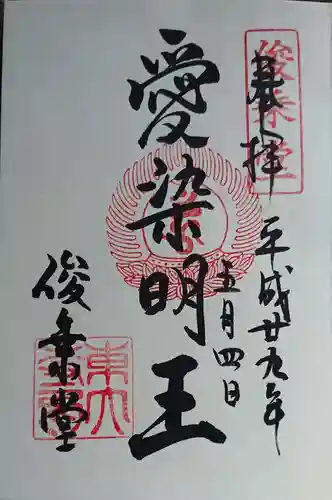 奉拝
俊乗堂
平成廿九年
五月四日
愛染明王
俊乗堂
東大